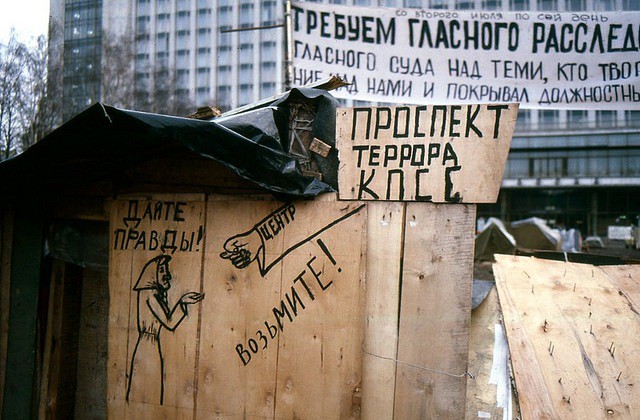 со второго июля по сей день
ТРЕБУЕМ ГЛАСНОГО РАССЛЕД
ГЛАСНОГО СУДА НАД ТЕМИ, КТО ТВОР
НИЕ НАД НАМИ И ПОКРЫВАЛ ДОЛЖНОСТНЫ
ПРОСПЕКТ
ТЕРРОРА
КПСС
ДАЙТЕ
ПРАВДЫ!
ЦЕНТР
ВОЗЬМИТЕ!